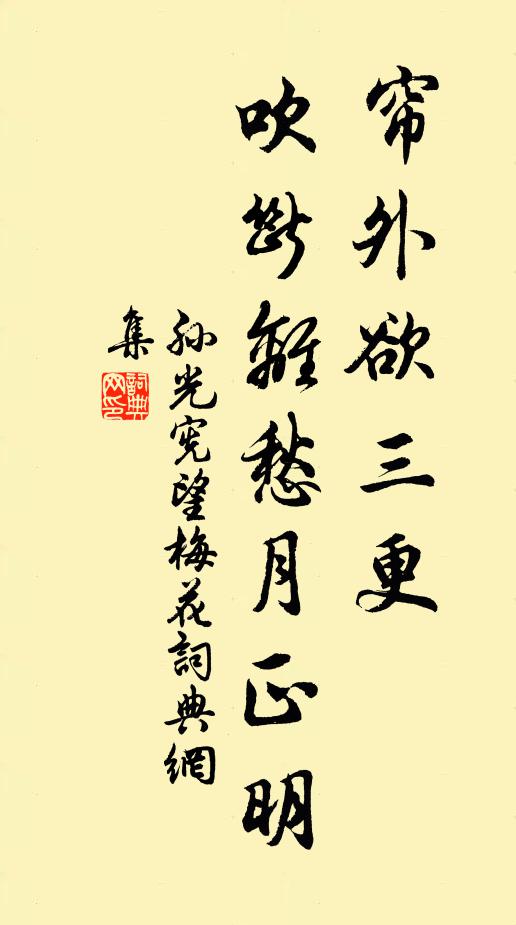 帘外欲三更
吹断離愁月正明
孙光宪望梅花詞典網
集
詞典
网印